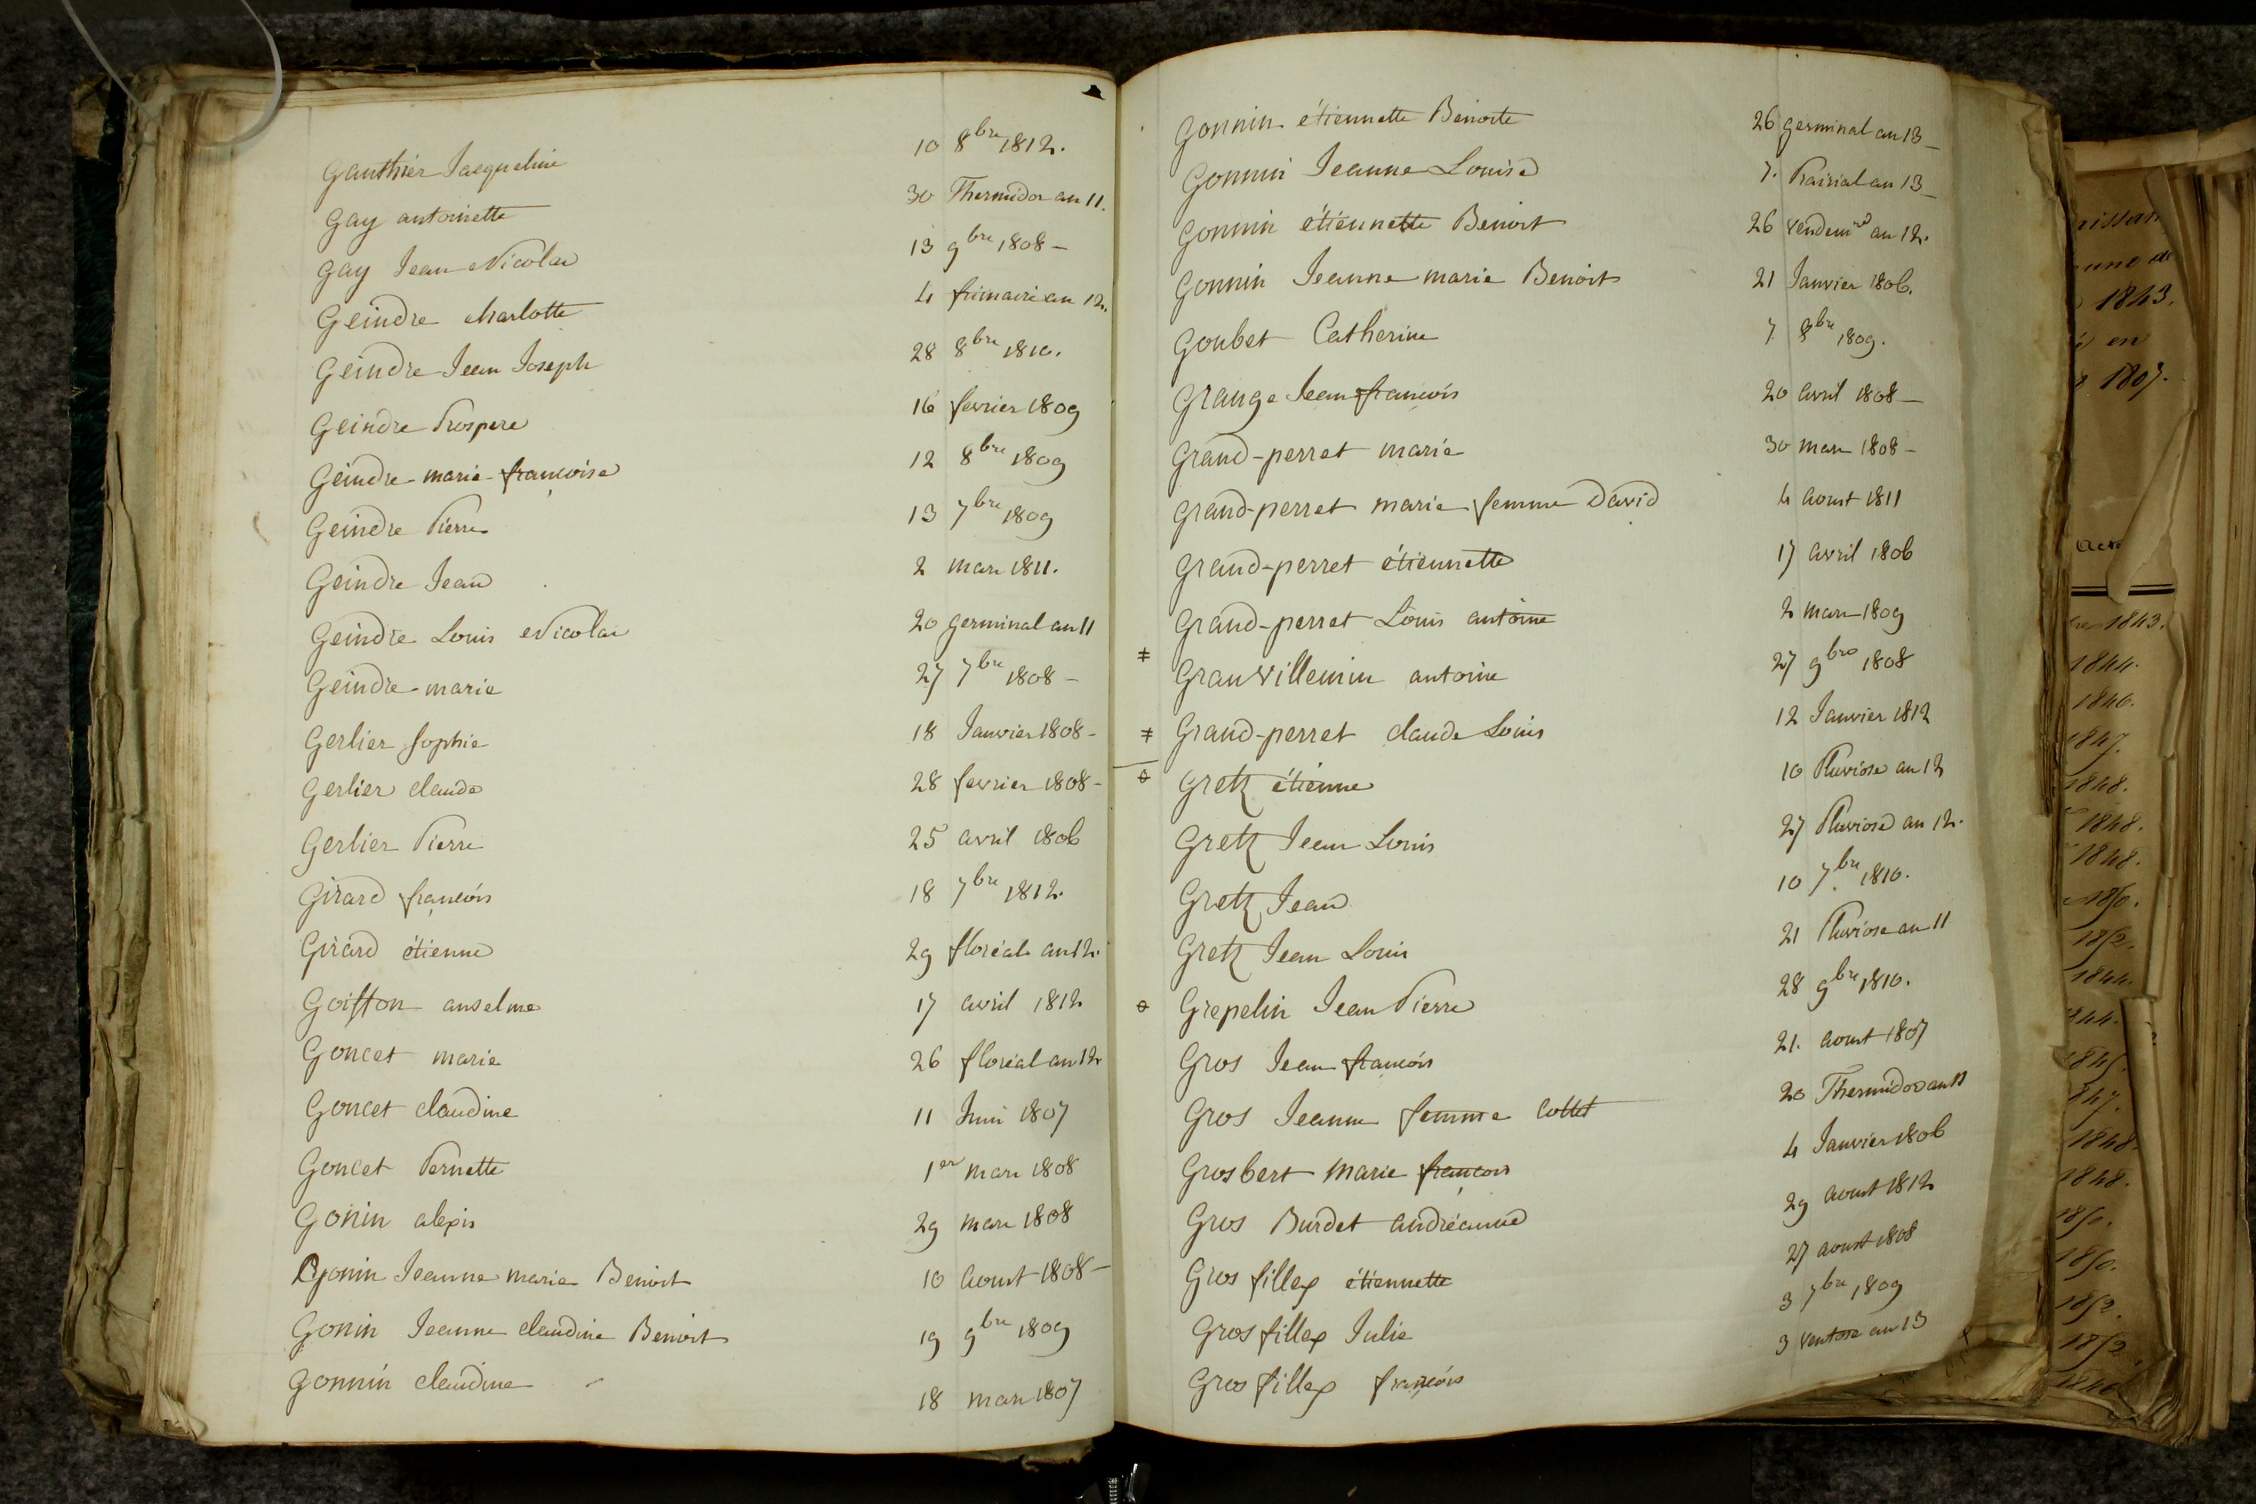 Gauthier Jacqueline 10 8bre 1812.
Gay antoinette 30 Thermidor an 11.
Gay Jean Nicolas 13 9bre 1808 -
Geindre charlotte 4 frimaire an 12.
Geindre Jean Joseph 28 8bre 1810.
Geindre Prospere 16 fevrier 1809
Geindre marie francoise 12 8bre 1809
Geindre Pierre 13 7bre 1809
Geindre Jean 2 mars 1811.
Geindre Louis Nicolas 20 germinal an 11
Geindre marie 27 7bre 1808 -
Gerlier sophie 18 Janvier 1808 -
Gerlier claude 28 fevrier 1808 -
Gerlier Pierre 25 avril 1806
Girard françois 18 7bre 1812.
Girard étienne 29 floréal an 12.
Goiffon anselme 17 avril 1812
Goncet marie 26 floréal an 12
Goncet claudine 11 Juin 1807
Goncet Pernette 1er mars 1808
Gonin alexis 29 mars 1808
Gonin Jeanne marie Benoit 10 aoust 1808 -
Gonin Jeanne claudine Benoit 19 9bre 1809
Gonnin claudine 18 mars 1807
Gonnin étiennette Benoite 26 germinal an 13 -
Gonnin Jeanne Louise 7. Prairial an 13 -
Gonnin étiennette Benoit 26 vendemre an 12.
Gonnin Jeanne marie Benoit 21 Janvier 1806.
Goubet Catherine 7 8bre 1809.
Grange Jean françois 20 avril 1808 -
Grand-perret marie 30 mars 1808 -
Grand-perret marie femme David 4 aoust 1811
Grand-perret étiennette 17 avril 1806
Grand-perret Louis antoine 2 mars 1809
‡ Granvillemin antoine 27 9bre 1808
‡ Grand-perret claude Louis 12 Janvier 1812
Gretz étienne 10 Pluviose an 12
Gretz Jean Louis 27 Pluviose an 12.
Gretz Jean 10 7bre 1810.
Gretz Jean Louis 21 Pluviose an 11
Grepelin Jean Pierre 28 9bre 1810.
Gros Jean françois 21. aoust 1807
Gros Jeanne femme Collet 20 Thermidor an 11
Grosbert Marie françois 4 Janvier 1806
Gros Burdet andréanne 29 aoust 1812
Gros fillex étiennette 27 aoust 1808
Gros fillex Julie 3 7bre 1809
Gros fillex françois 3 ventose an 13
1843.
en
1807.
1843.
1844.
1846.
1847.
1848.
1848.
1848.
1844.
1848.
1848.